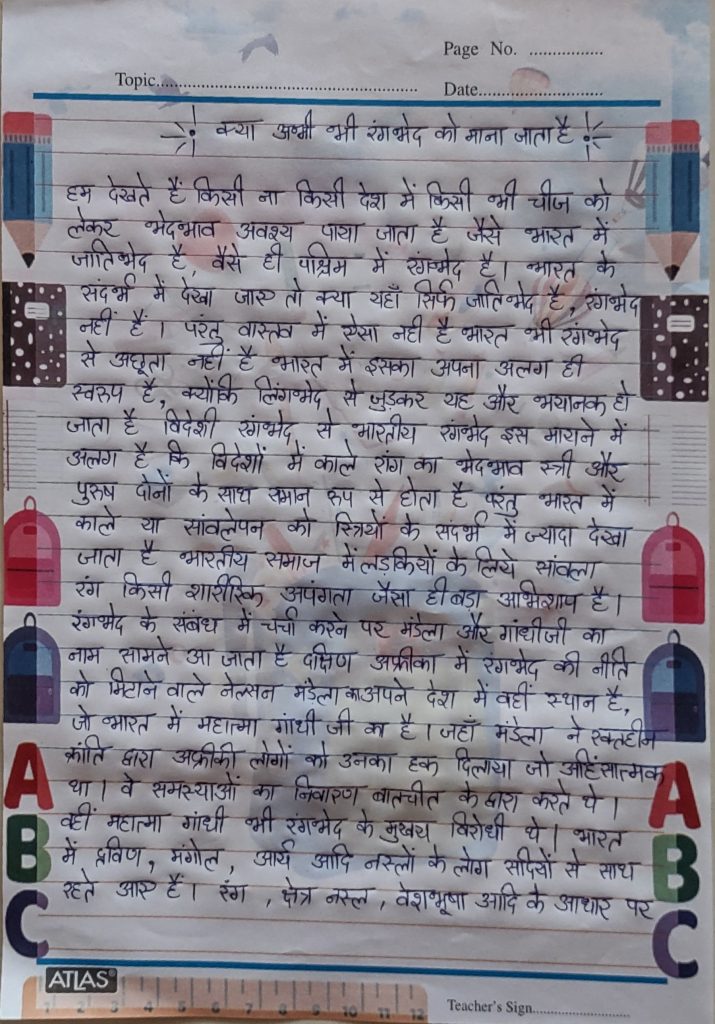 Page No. ................
Topic............................................................ Date...........................
क्या अभी भी रंगभेद को माना जाता है
हम देखते हैं किसी ना किसी देश में किसी भी चीज को
लेकर भेदभाव अवश्य पाया जाता है जैसे भारत में
जातिभेद है, वैसे ही पश्चिम में रंगभेद है। भारत के
संदर्भ में देखा जाए तो क्या यहाँ सिर्फ जातिभेद है, रंगभेद
नहीं है। परंतु वास्तव में ऐसा नही है भारत भी रंगभेद
से अछूता नहीं है भारत में इसका अपना अलग ही
स्वरुप है, क्योंकि लिंगभेद से जुड़कर यह और भयानक हो
जाता है विदेशी रंगभेद से भारतीय रंगभेद इस मायने में
अलग है कि विदेशों में काले रंग का भेदभाव स्त्री और
पुरुष दोनों के साथ समान रूप से होता है परंतु भारत में
काले या सांवलेपन को स्त्रियों के संदर्भ में ज्यादा देखा
जाता है भारतीय समाज में लड़कियों के लिये सांवला
रंग किसी शारीरिक अपंगता जैसा ही बड़ा अभिशाप है।
रंगभेद के संबंध में चर्चा करने पर मंडेला और गांधीजी का
नाम सामने आ जाता है दक्षिण अफ्रीका में रंगभेद की नीति
को मिटाने वाले नेल्सन मंडेला का अपने देश में वहीं स्थान है,
जो भारत में महात्मा गांधी जी का है। जहाँ मंडेला ने रक्तहीन
क्रांति द्वारा अफ्रीकी लोगों को उनका हक दिलाया जो अहिंसात्मक
था। वे समस्याओं का निवारण बातचीत के द्वारा करते थे।
वहीं महात्मा गांधी भी रंगभेद के मुख्य विरोधी थे। भारत
में द्रविण, मंगोल, आर्य आदि नस्लों के लोग सदियों से साथ
रहते आए हैं। रंग, क्षेत्र नस्ल, वेशभूषा आदि के आधार पर
A
B
C
A
B
C
ATLAS®
1 2 3 4 5 6 7 8 9 10 11 12
Teacher's Sign..........................